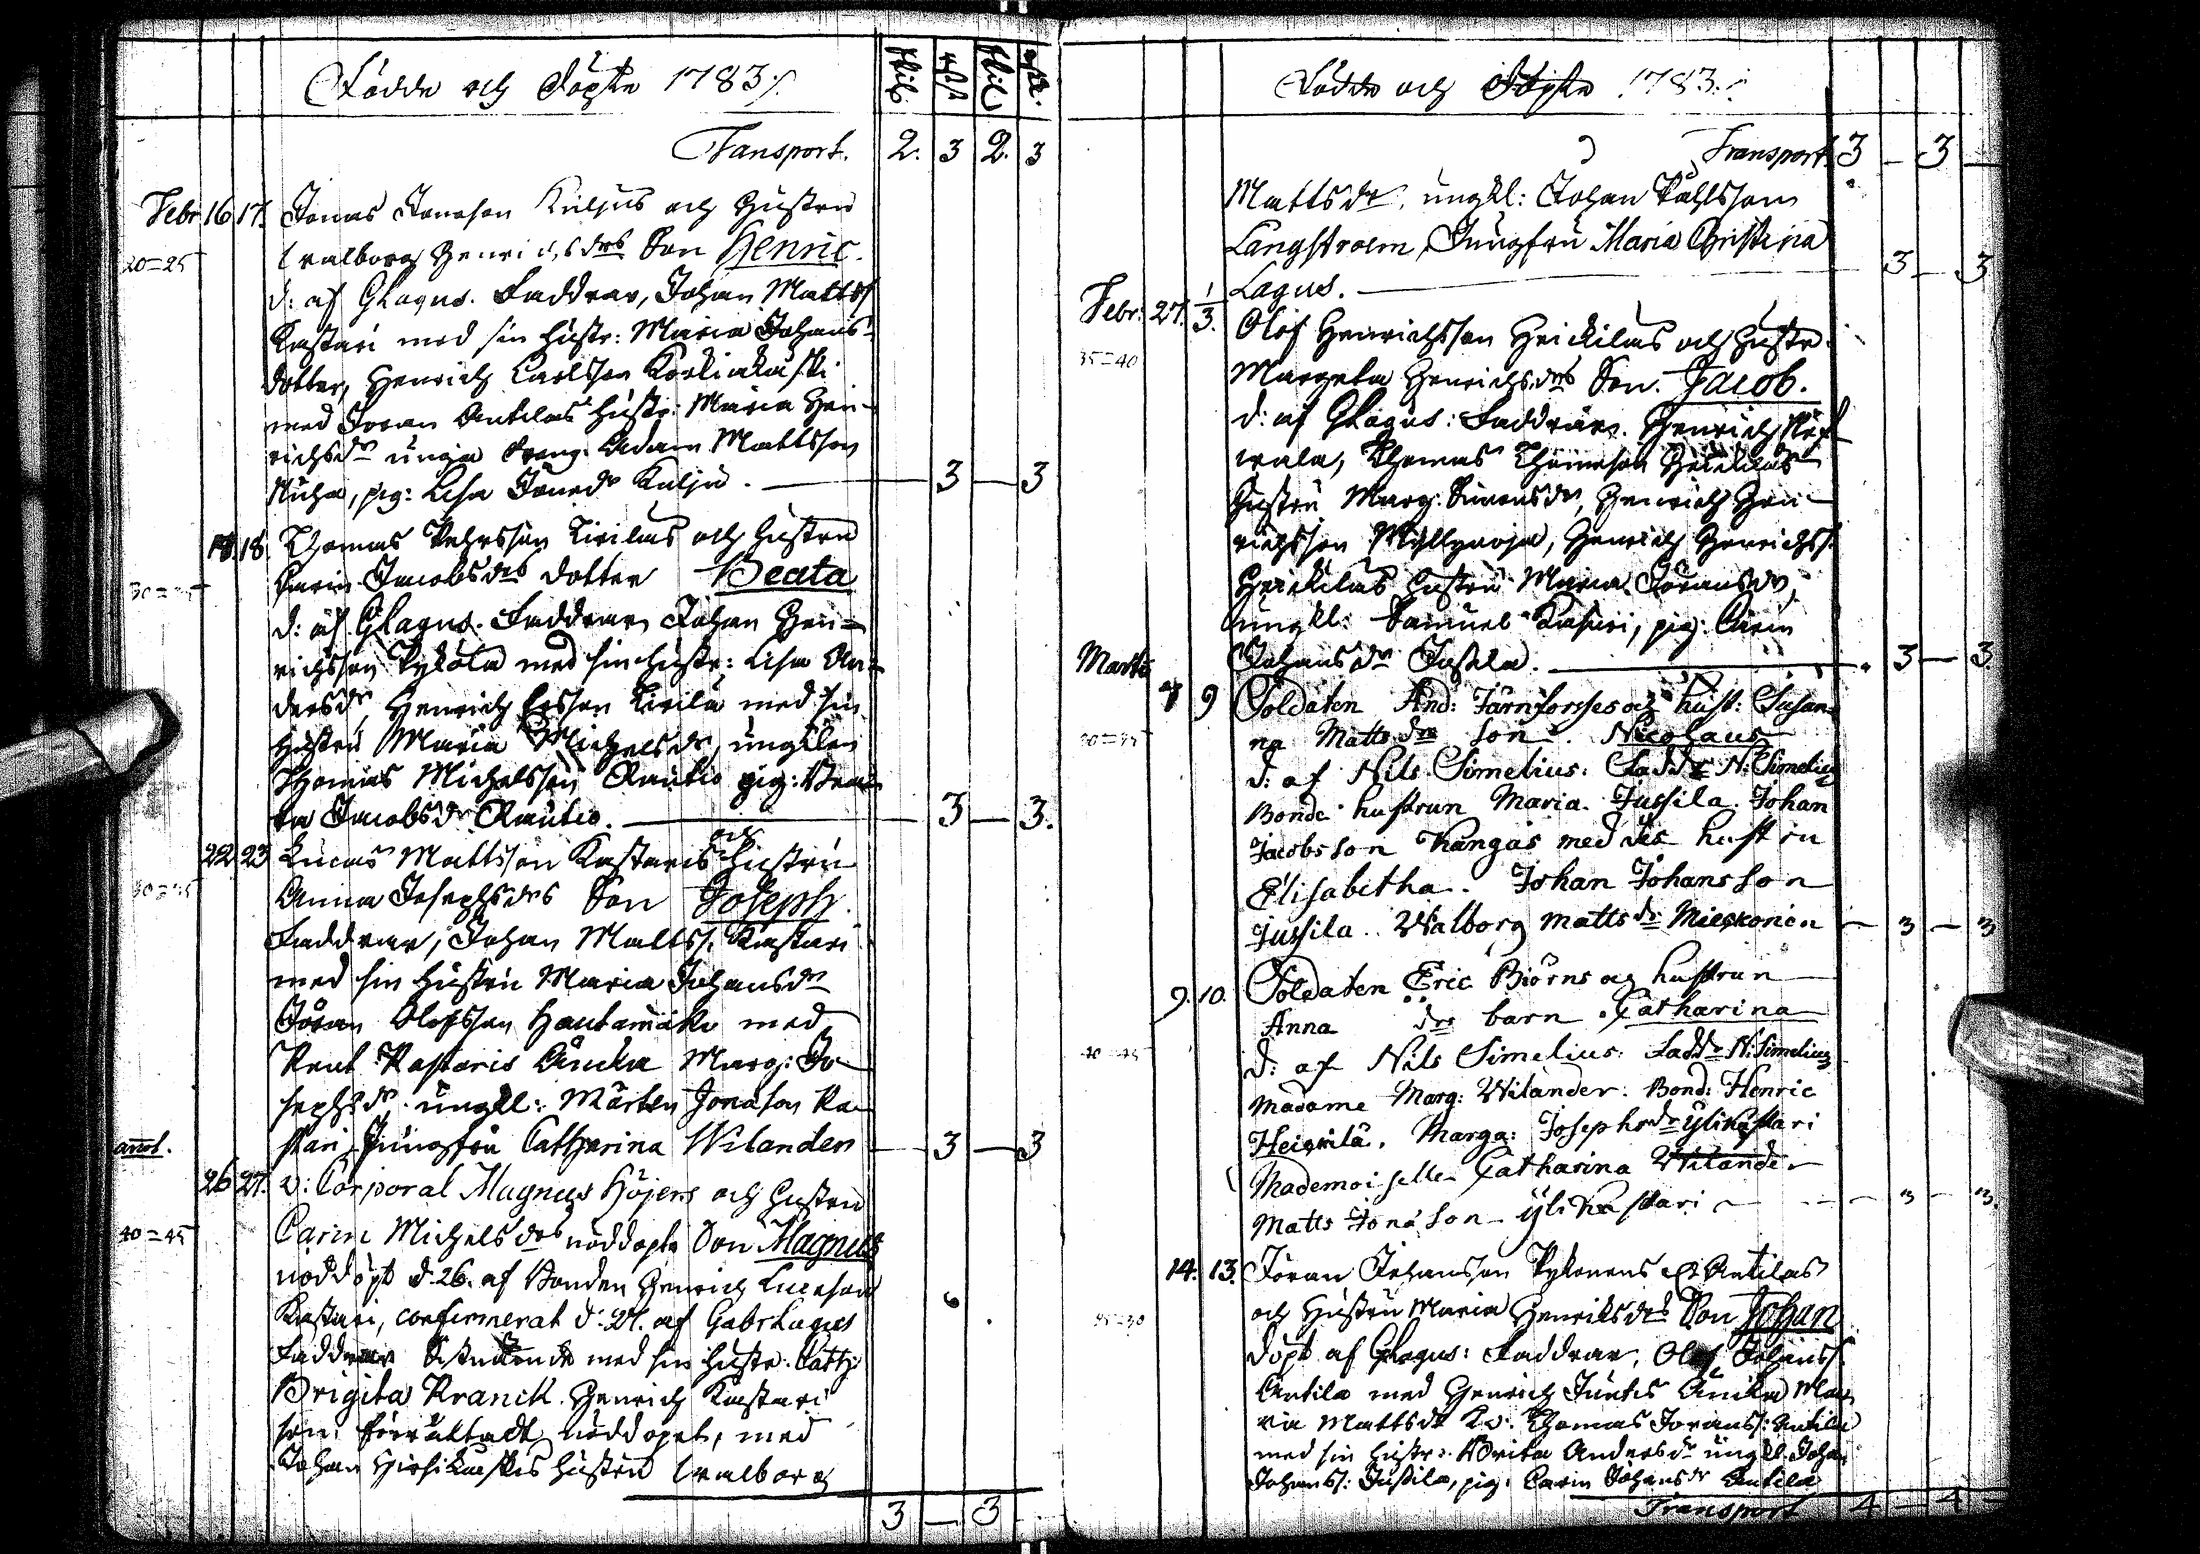 Födde och Döpte 1783 ⁒
skil. rst skil rst.
Transport. 2. 3 2. 3
Febr. 16 17. Jonas Jonason Kuljus och Hustru
20=25 Walborg Henrichsdrs Son Henric.
d: af GLagus. Faddrar, Johan Mattss
Kastari med sin hustr: Maria Johans-
dotter, Henrich Carlsson Korkiakoski
med Joran Antilas hustr: Maria Hen-
richsdr unga dreng. Adam Mattsson
, pig: Lisa Jonædr Kulju. 3 3
18. 18. Thomas Pehrsson Kivilas och hustru
30=35 Carin Jacobsdrs dotter Beata
d: af. GLagus. Faddrar Johan Hen=
richsson Pyköla med sin hustr: Lisa An=
dersdr, Henrich Ersson Kivila med sin
hustru Maria Michelsdr, ungkarlen
Thomas Michelsson Rautio pig: Brita
Jacobsdr Rautio. 3 3.
22 23 Lucas Mattsson Kastaris och Hustru
30=35 Anna Josephsdrs Son Joseph.
Faddrar, Johan Mattss. Kastari
med sin hustru Maria Johansdr
Jöran Olofsson Hautamäki med
Rent Kastaris Änka Marg: Jo-
sephsdr. ungkl: Mårten Jonason Ka-
stari Jungfru Catharina Wilander 3 3
annot.
26 27. v: Corporal Magnus Höjers och hustru
40=45 Carin Michelsdrs nöddöpte Son Magnus
nöddöpt d. 26. af Bonden Henrich Lucason
Kastari, confirmerat d: 27. af Gabr Lagus
Faddrar med sin hustr. Cath:
Brigita Kranck. Henrich Kastari
som förrättadt nöddopet, med
Johan Hirsikoskis hustru Walborg
3 — 3
Födde och Döpte 1783 ⁒
Transport 3 — 3 —
Mattsdr. ungkl: Johan Påhlsson
Långstroem, Jungfru Maria Christina
Lagus. 3 — 3
Febr. 27. 1/3. Olof Henrichsson Heickilas och hustr.
35=40 Margeta Henrichsdrs Son. Jacob.
d: af GLagus: Faddrar. Henrich
, Thomas Thomeson Heickilas
hustru Marg. Simonsdr, Henrich Hen-
richsson Myllynoja, Henrich Henrichss.
Heickilas hustru Maria Jöransdr,
ungkl: Samuel Kasuri, pig: Carin
Johansdr Jussila. 3 — 3.
Martii
8 9 Soldaten And: Järnforsses och hust: Susan-
30=35 na Mattsdrs son. Nicolaus
d: af Nils Simelius. Faddr N: Simelius
Bonde hustrun Maria. Jussila. Johan
Jacobsson Kangas med des hustru
Elisabetha. Johan Johansson
Jussila. Walborg Mattsdr Mieskonen — 3 — 3
9. 10. Soldaten Eric Biörns og hustrun
Anna drs barn. Catharina
40=45 d: af Nils Simelius: Faddr N: Simelius
Madame Marg: Wilander. Bond: Henric
Heickilä. Marga: Josephsdr Ylikastari
Mademoiselle Catharina Wilander
Matts Jonason Ylikastari 3 — 3.
14. 13. Joran Johansson Pykönens el: Antilas
25=30 och Hustru Maria Henriksdrs Son Johan
döpt af GLagus: Faddrar, Olof Johanss.
Antila med Henrich Juntis Änka Ma-
ria Mattsdr Kv. Thomas Joranss: Antila
med sin hustr: Brita Andersdr ungkl. Johan
Johanss: Jussila, pig: Carin Johansdr Antila
Transport 4 — 4